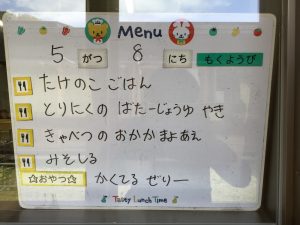 Menu
5 がつ 8 にち もくようび
たけのこ ごはん
とりにくの ばたーじょうゆ やき
きゃべつの おかか まよあえ
みそしる
☆おやつ☆ かくてる ぜりー
Tasty Lunch Time